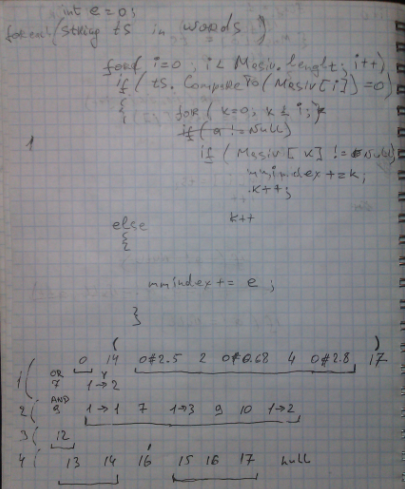 int e = 0;
foreach(string ts in words)
for( i=0; i < Masiv.Lenght; i++)
if( ts.CompareTo(Masiv[i]) =0)
{
for( k=0, k < i;
if( a != Null)
1
if( Masiv[k] != Null)
mnindex += k;
k++;
k++
else
{
mnindex += e;
}
( )
0 14 0#2.5 2 0#0.68 4 0#2.8 17
1( OR 7 1→2
AND
2( 9 1→1 7 1→3 9 10 1→2
3( 12
4( 13 14 16 15 16 17 null